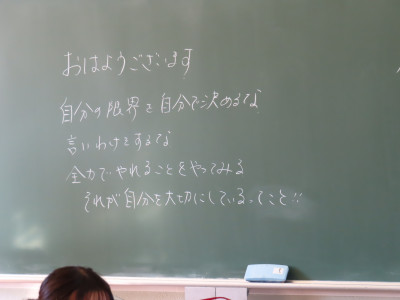 おはようございます
自分の限界を自分で決めるな
言いわけをするな
全力でやれることをやってみる
それが自分を大切にしているってこと!!